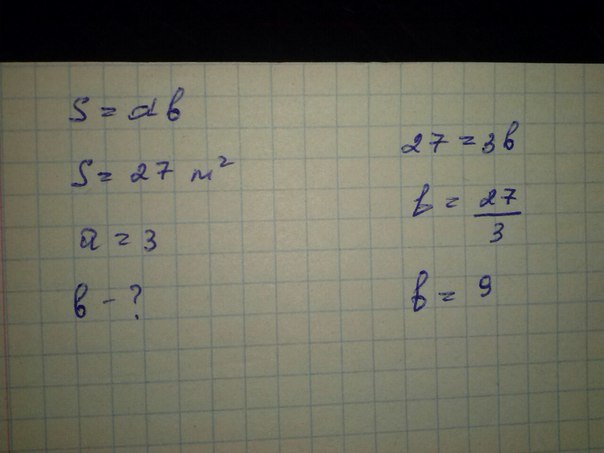 S = ab
S = 27 м²
a = 3
b - ?
27 = 3b
b = 27/3
b = 9